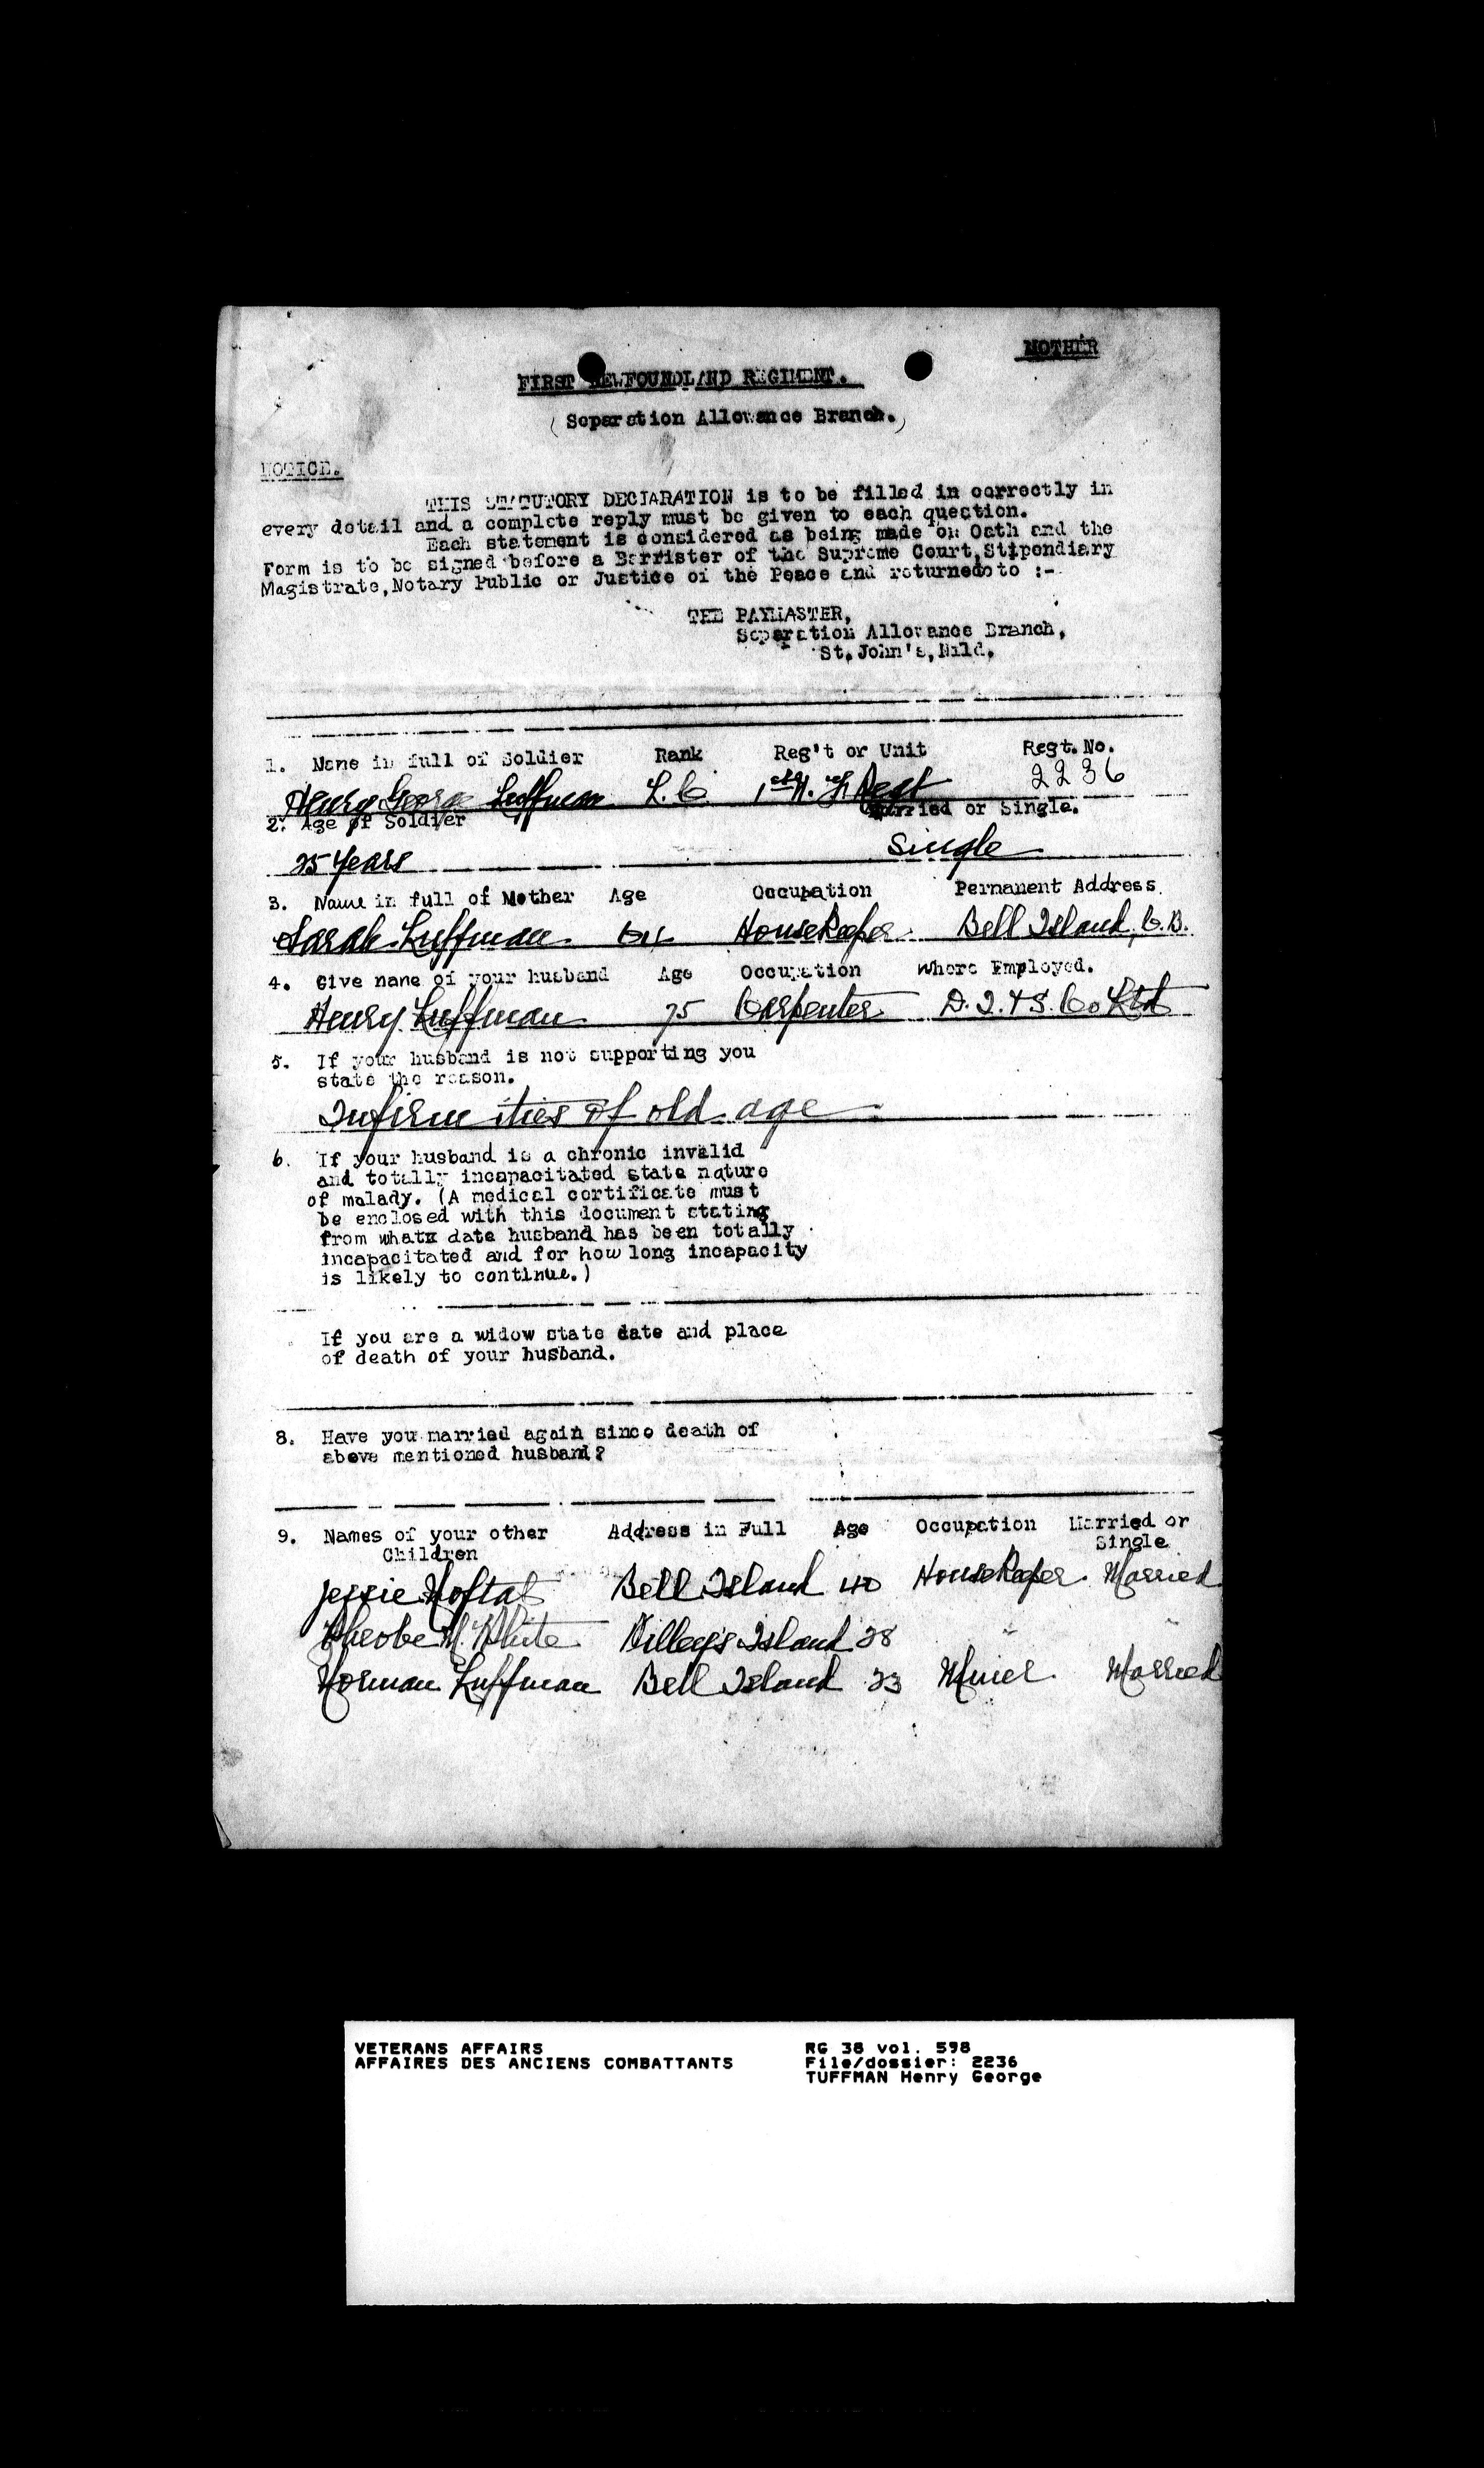 MOTHER
FIRST NEWFOUNDLAND REGIMENT.
(Separation Allowance Branch.)
NOTICE.
THIS STATUTORY DECLARATION is to be filled in correctly in
every detail and a complete reply must be given to each question.
Each statement is considered as being made on Oath and the
Form is to be signed before a Barrister of the Supreme Court,Stipendiary
Magistrate,Notary Public or Justice of the Peace and returnedoto :-
THE PAYMASTER,
Separation Allowance Branch,
St.John's,Nfld.
1. Name in full of Soldier Rank Reg't or Unit Regt. No.
Henry George Luffman L.C. 1st N. F. Regt 2236
2. Age of Soldier Married or Single.
25 Years Single
3. Name in full of Mother Age Occupation Permanent Address
Sarah Luffman 64 HouseKeeper Bell Island, C.B.
4. Give name of your husband Age Occupation Where Employed.
Henry Luffman 75 Carpenter D. I. & S. Co Ltd
5. If your husband is not supporting you
state the reason.
Infirmities of old age
6. If your husband is a chronic invalid
and totally incapacitated state nature
of malady. (A medical certificate must
be enclosed with this document stating
from whatx date husband has been totally
incapacitated and for how long incapacity
is likely to continue.)
If you are a widow state date and place
of death of your husband.
8. Have you married again since death of
above mentioned husband?
9. Names of your other Address in Full Age Occupation Married or
Children Single
Jessie Noftat Bell Island 40 HouseKeeper Married
Pheobe M. White Pilley's Island 28 " "
Norman Luffman Bell Island 23 Miner Married
VETERANS AFFAIRS RG 38 vol. 598
AFFAIRES DES ANCIENS COMBATTANTS File/dossier: 2236
TUFFMAN Henry George